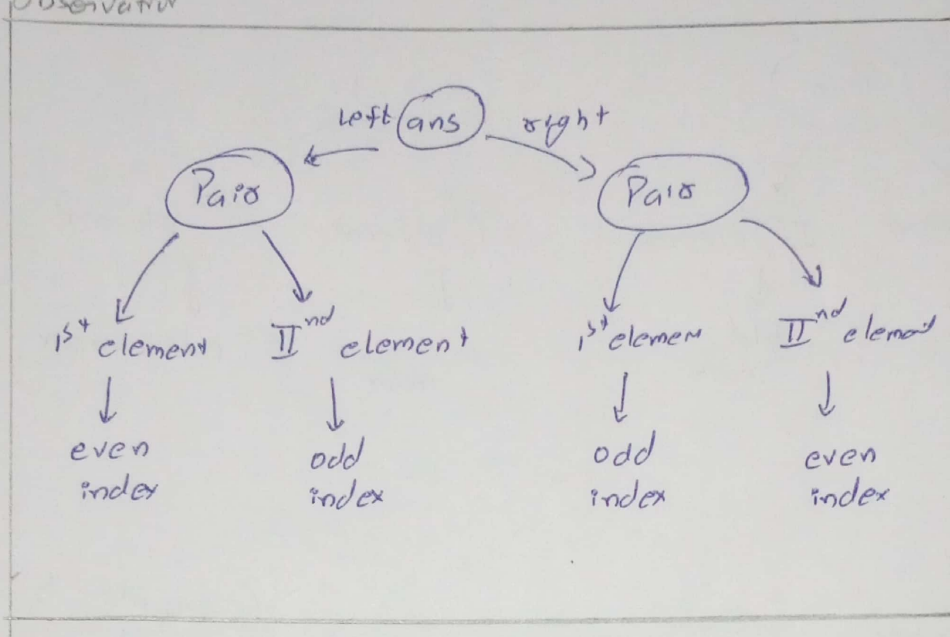 Observation
left ans right
Pair Pair
1st element IInd element 1st elemen IInd element
even odd odd even
index index index index